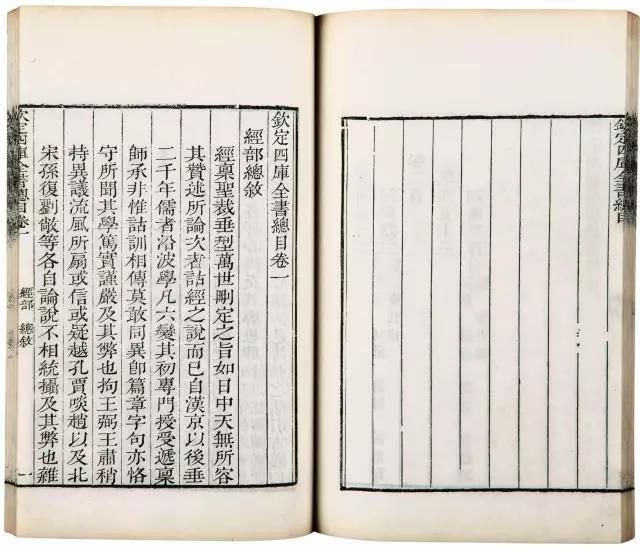 欽定四庫全書總目
欽定四庫全書總目卷一
經部總敘
經稟聖裁垂型萬世刪定之旨如日中天無所容
其贊述所論次者詁經之說而已自漢京以後垂
二千年儒者沿波學凡六變其初專門授受遞稟
師承非惟詁訓相傳莫敢同異卽篇章字句亦恪
守所聞其學篤實謹嚴及其弊也拘王弼王肅稍
持異議流風所扇或信或疑越孔賈啖趙以及北
宋孫復劉敞等各自論說不相統攝及其弊也雜
欽定四庫全書總目卷一
經部 總敘
一